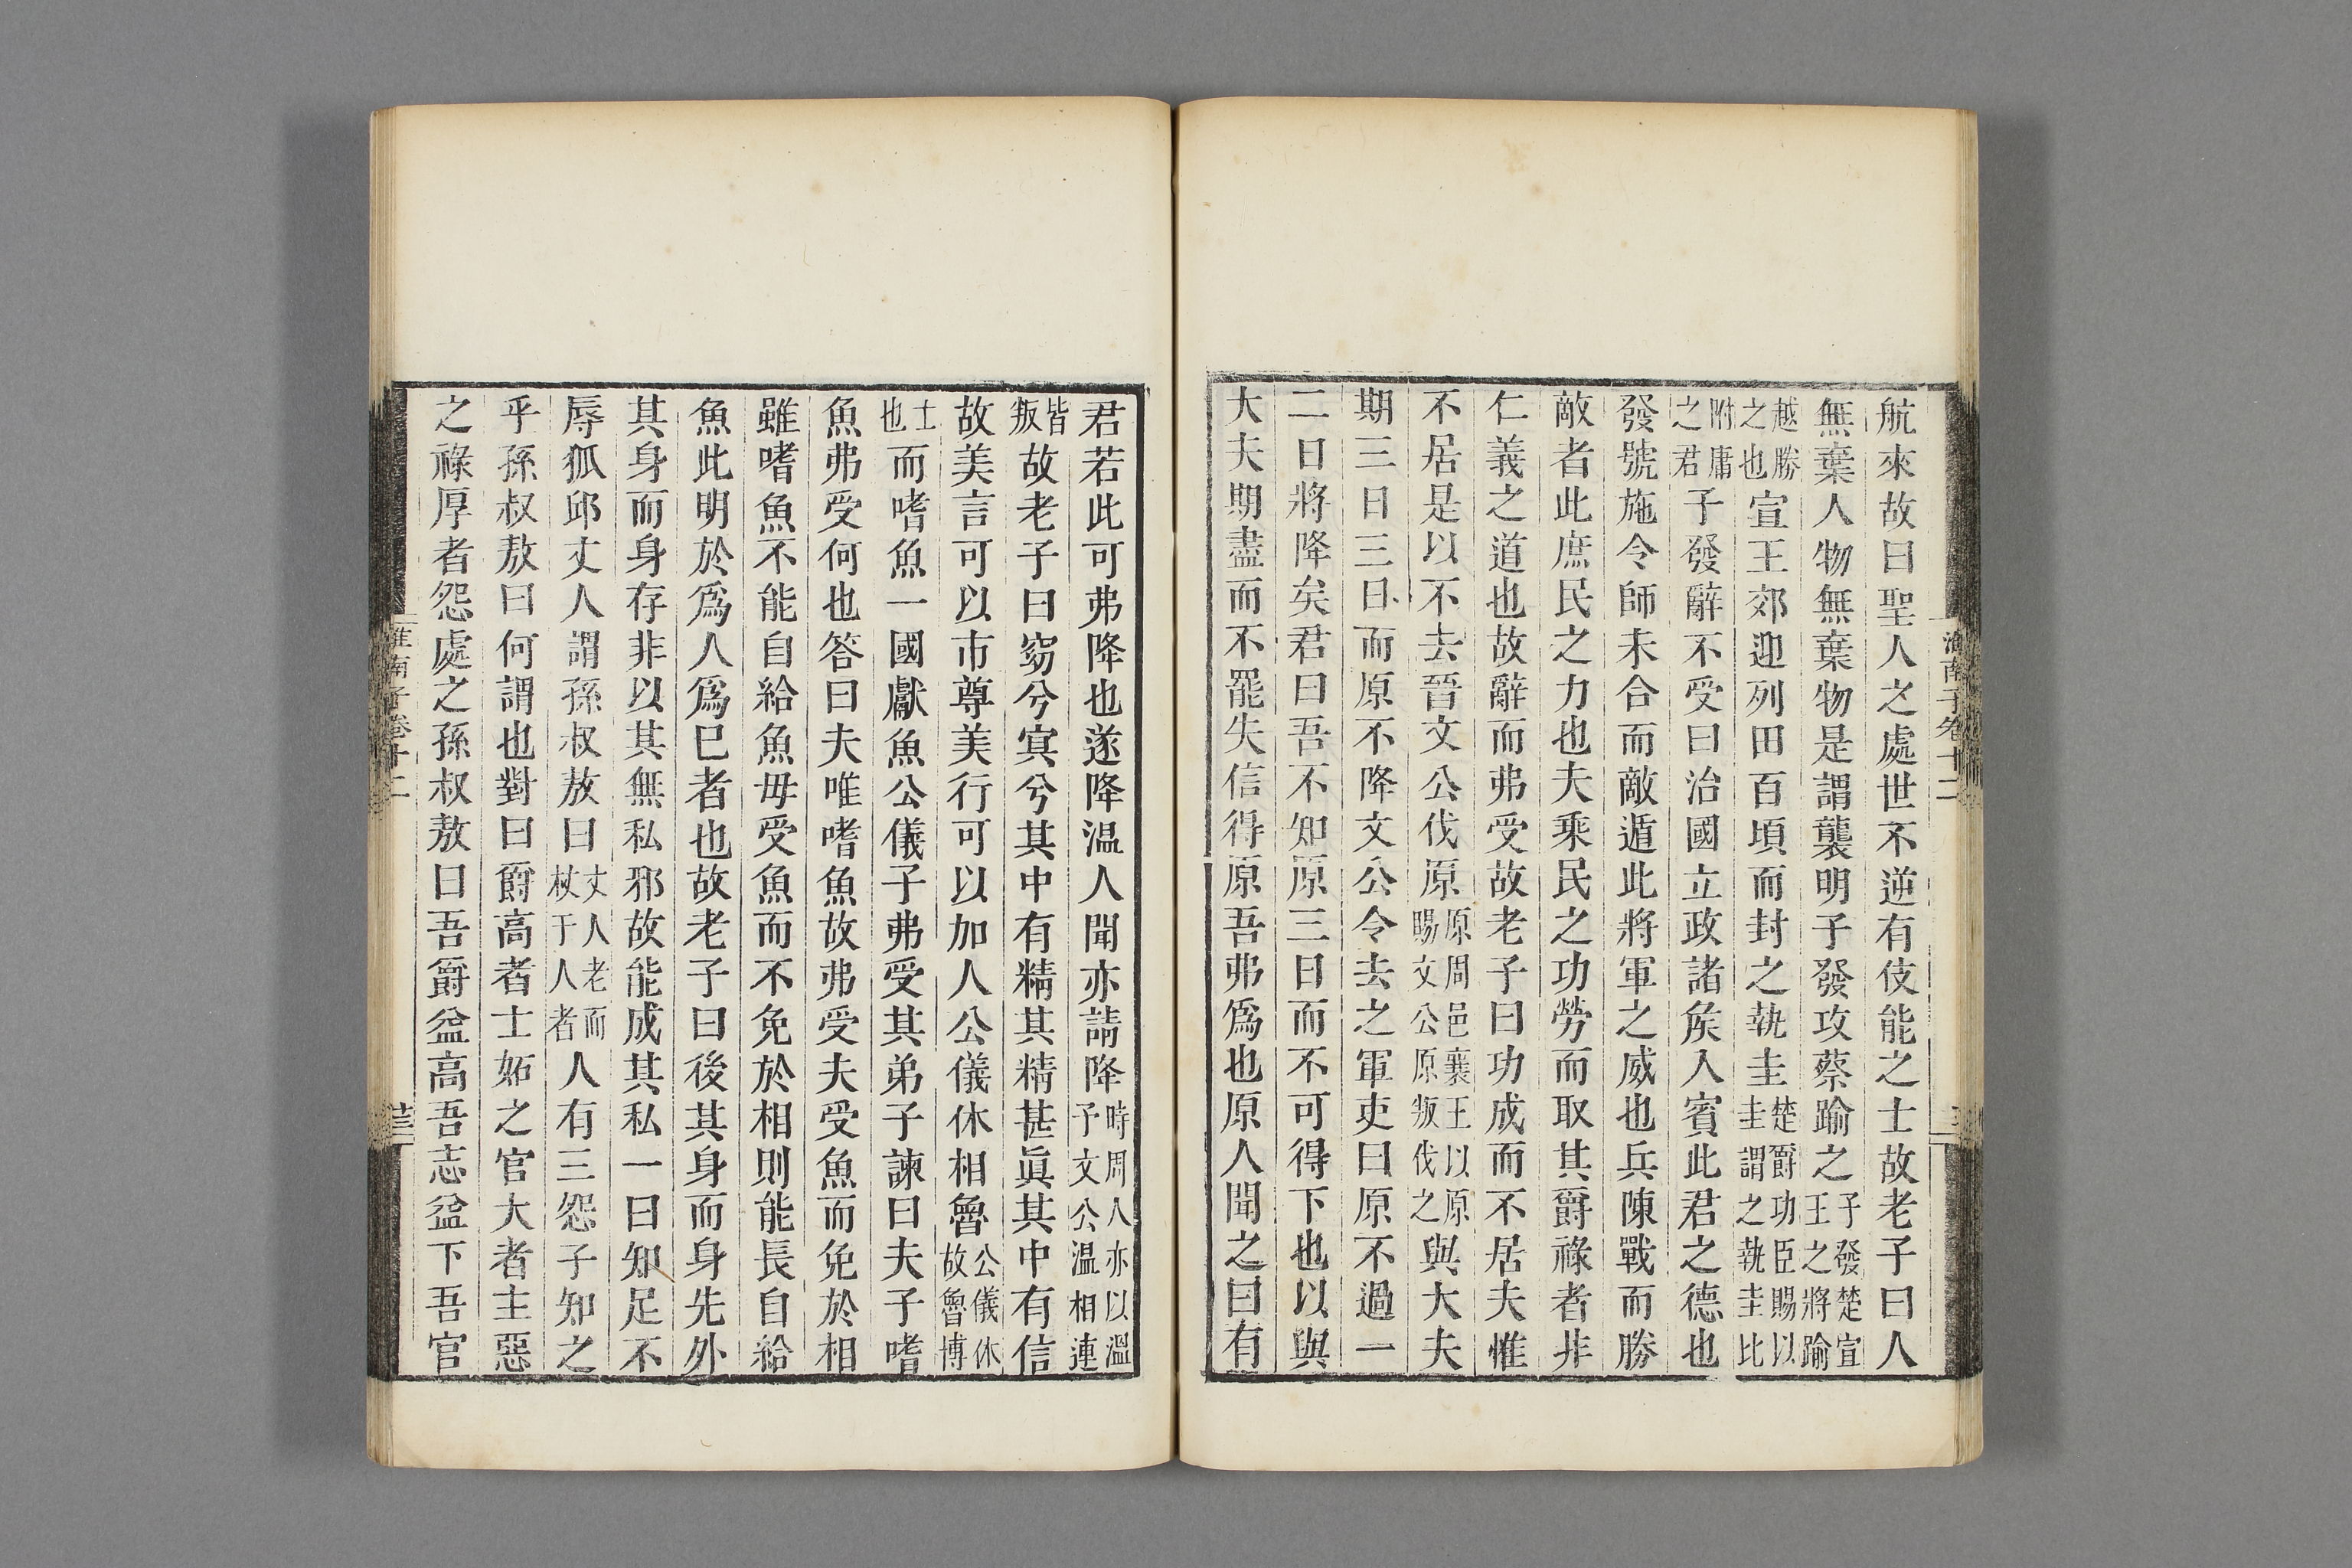 航來故曰聖人之處世不逆有伎能之士故老子曰人
無棄人物無棄物是謂襲明子發攻蔡踰之子發楚宣王之將踰
越勝之也宣王郊迎列田百頃而封之執圭楚爵功臣賜以圭謂之執圭比
附庸之君子發辭不受曰治國立政諸矦入賓此君之德也
發號施令師未合而敵遁此將軍之威也兵陳戰而勝
敵者此庶民之力也夫乘民之功勞而取其爵祿者非
仁義之道也故辭而弗受故老子曰功成而不居夫惟
不居是以不去晉文公伐原原周邑襄王以原賜文公原叛伐之與大夫
期三日三日而原不降文公令去之軍吏曰原不過一
二日將降矣君曰吾不知原三日而不可得下也以與
大夫期盡而不罷失信得原吾弗爲也原人聞之曰有
淮南子卷十二
君若此可弗降也遂降温人聞亦請降時周人亦以溫予文公溫相連
皆叛故老子曰窈兮冥兮其中有精其精甚眞其中有信
故美言可以市尊美行可以加人公儀休相魯公儀休故魯博
士也而嗜魚一國獻魚公儀子弗受其弟子諫曰夫子嗜
魚弗受何也答曰夫唯嗜魚故弗受夫受魚而免於相
雖嗜魚不能自給魚毋受魚而不免於相則能長自給
魚此明於爲人爲巳者也故老子曰後其身而身先外
其身而身存非以其無私邪故能成其私一曰知足不
辱狐邱丈人謂孫叔敖曰丈人老而杖于人者人有三怨子知之
乎孫叔敖曰何謂也對曰爵高者士妬之官大者主惡
之祿厚者怨處之孫叔敖曰吾爵益高吾志益下吾官
淮南子卷十二